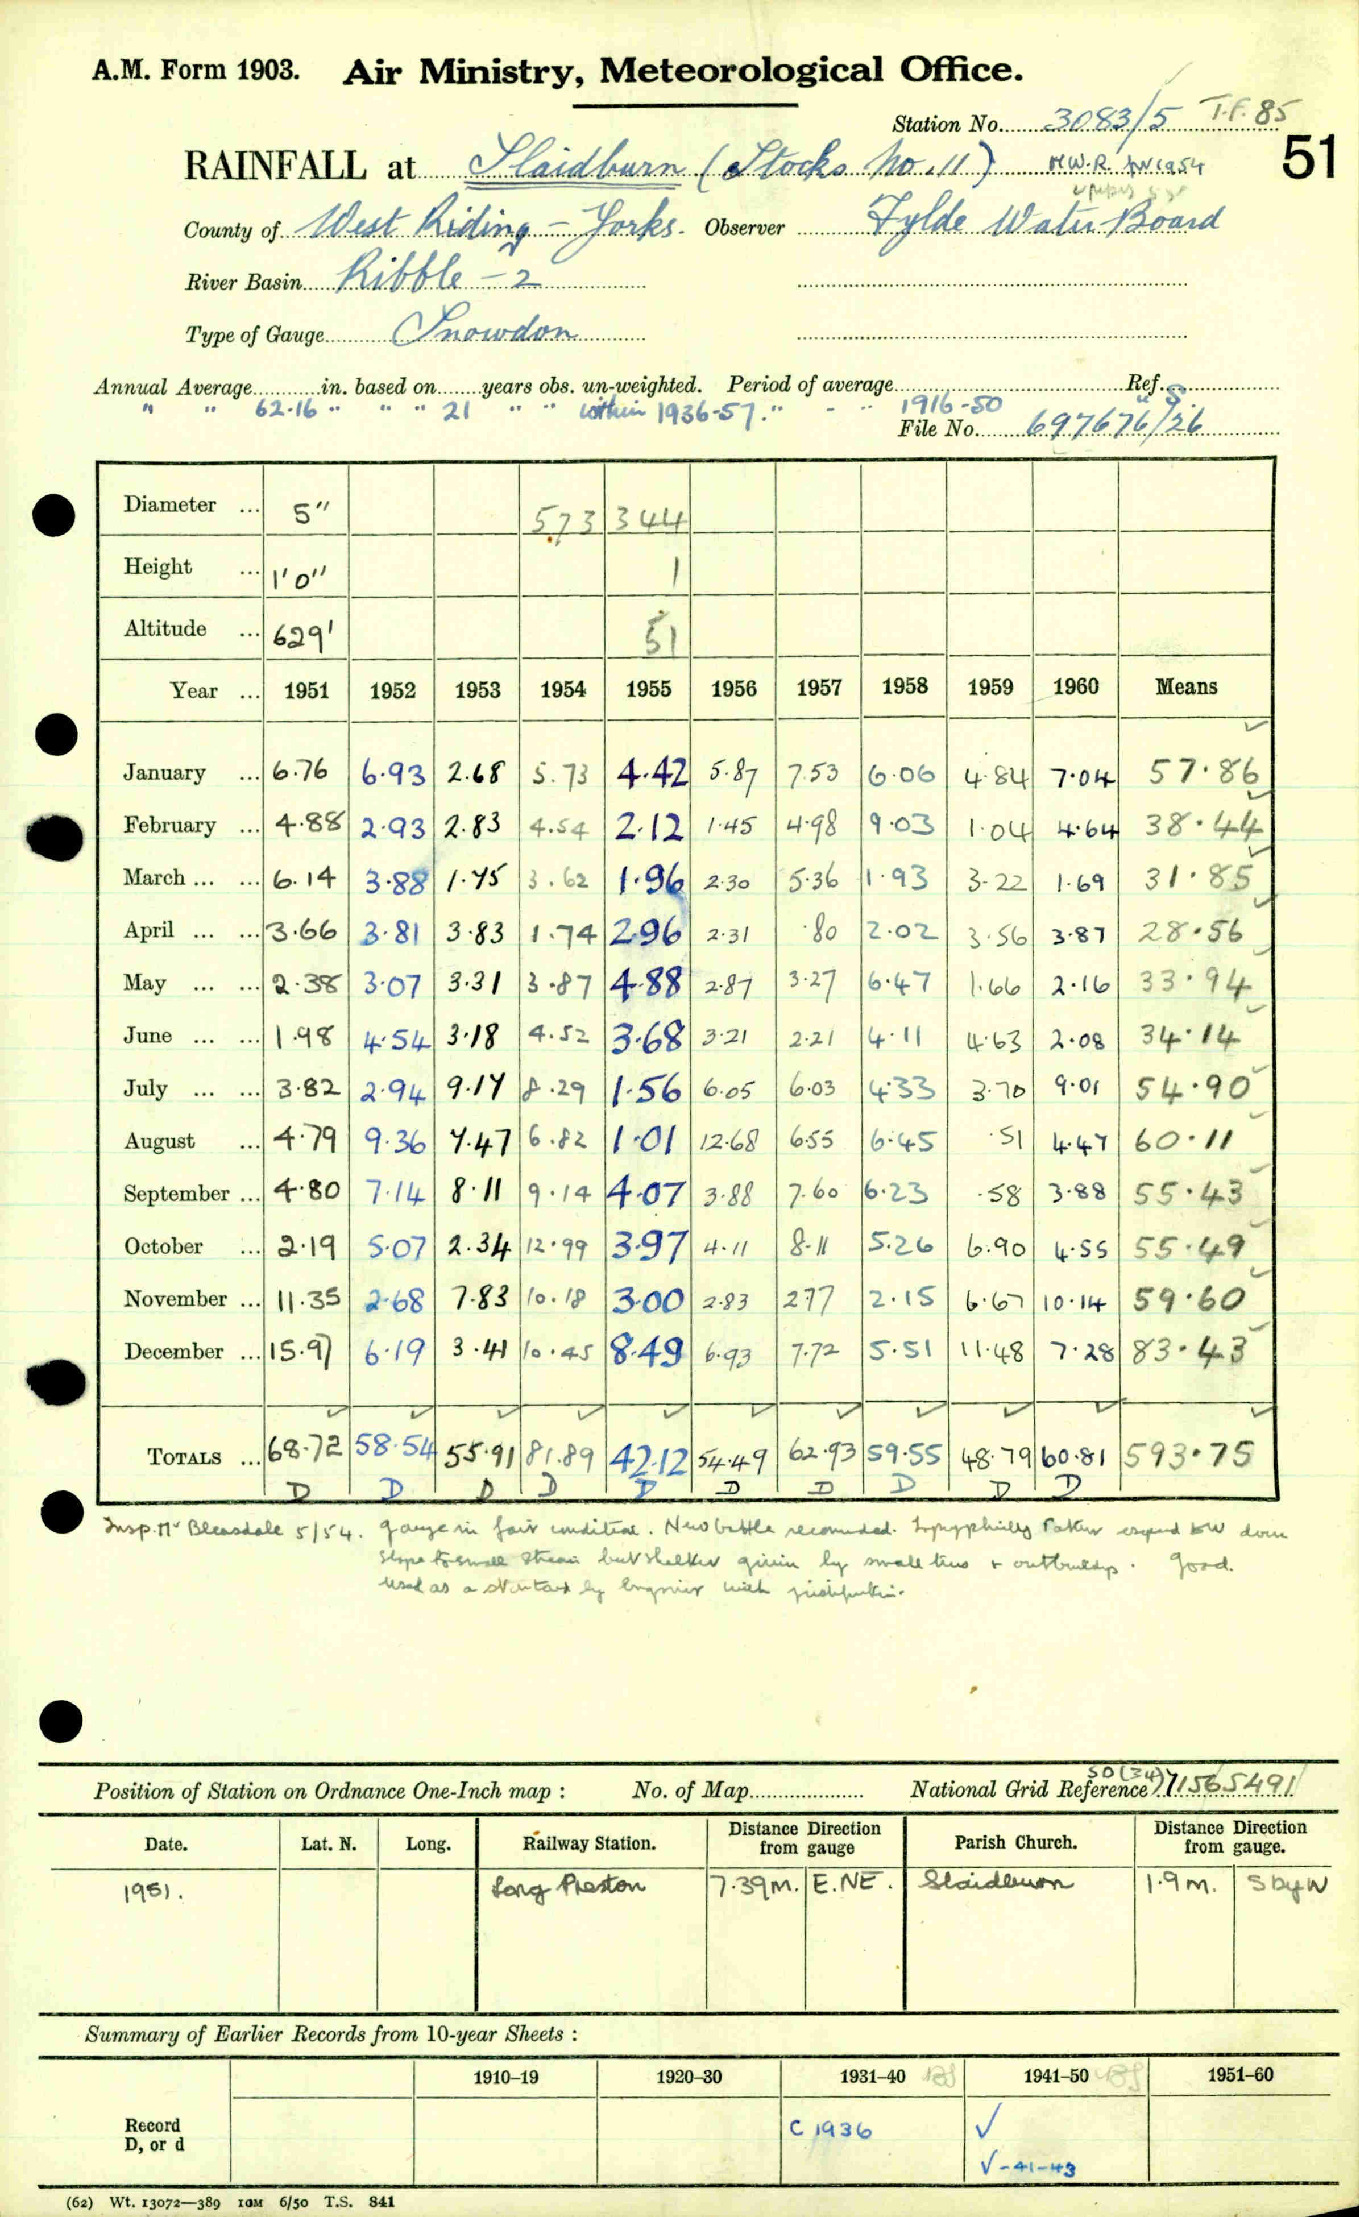 A.M. Form 1903. Air Ministry, Meteorological Office.
Station No. 3083/5 T.F. 85
RAINFALL at Slaidburn (Stocks No. 11) M.W.R. 1954 51
County of West Riding - Yorks. Observer Fylde Water Board
River Basin Ribble - 2
Type of Gauge Snowdon
Annual Average in. based on years obs. un-weighted. Period of average Ref. S.
" " 62.16 " " " 21 " " within 1936-57. " - " 1916-50
File No. 697676/26
Diameter ... 5" 573 344
Height ... 1'0" 1
Altitude ... 629' 51
Year ... 1951 1952 1953 1954 1955 1956 1957 1958 1959 1960 Means
January ... 6.76 6.93 2.68 5.73 4.42 5.87 7.53 6.06 4.84 7.04 57.86
February ... 4.88 2.93 2.83 4.54 2.12 1.45 4.98 9.03 1.04 4.64 38.44
March ... ... 6.14 3.88 1.75 3.62 1.96 2.30 5.36 1.93 3.22 1.69 31.85
April ... ... 3.66 3.81 3.83 1.74 2.96 2.31 .80 2.02 3.56 3.87 28.56
May ... ... 2.38 3.07 3.31 3.87 4.88 2.87 3.27 6.47 1.66 2.16 33.94
June ... ... 1.98 4.54 3.18 4.52 3.68 3.21 2.21 4.11 4.63 2.08 34.14
July ... ... 3.82 2.94 9.17 8.29 1.56 6.05 6.03 4.33 3.70 9.01 54.90
August ... 4.79 9.36 7.47 6.82 1.01 12.68 6.55 6.45 .51 4.47 60.11
September ... 4.80 7.14 8.11 9.14 4.07 3.88 7.60 6.23 .58 3.88 55.43
October ... 2.19 5.07 2.34 12.99 3.97 4.11 8.11 5.26 6.90 4.55 55.49
November ... 11.35 2.68 7.83 10.18 3.00 2.83 2.77 2.15 6.67 10.14 59.60
December ... 15.97 6.19 3.41 10.45 8.49 6.93 7.72 5.51 11.48 7.28 83.43
TOTALS ... 68.72 58.54 55.91 81.89 42.12 54.49 62.93 59.55 48.79 60.81 593.75
D D D D D D D D D D
Insp. Mr Bleasdale 5/54. gauge in fair condition. New bottle
slope to small stream but shelter given by small trees + outbuildings. Good.
Used as a
Position of Station on Ordnance One-Inch map : No. of Map National Grid Reference SD (34) 71565491
Date. Lat. N. Long. Railway Station. Distance Direction from gauge Parish Church. Distance Direction from gauge.
1951. Long Preston 7.39m. E.NE. Slaidburn 1.9m. S by W
Summary of Earlier Records from 10-year Sheets :
1910–19 1920–30 1931–40 1941–50 1951–60
Record
D, or d
C 1936 √
√ - 41-43
(62) Wt. 13072—389 10M 6/50 T.S. 841